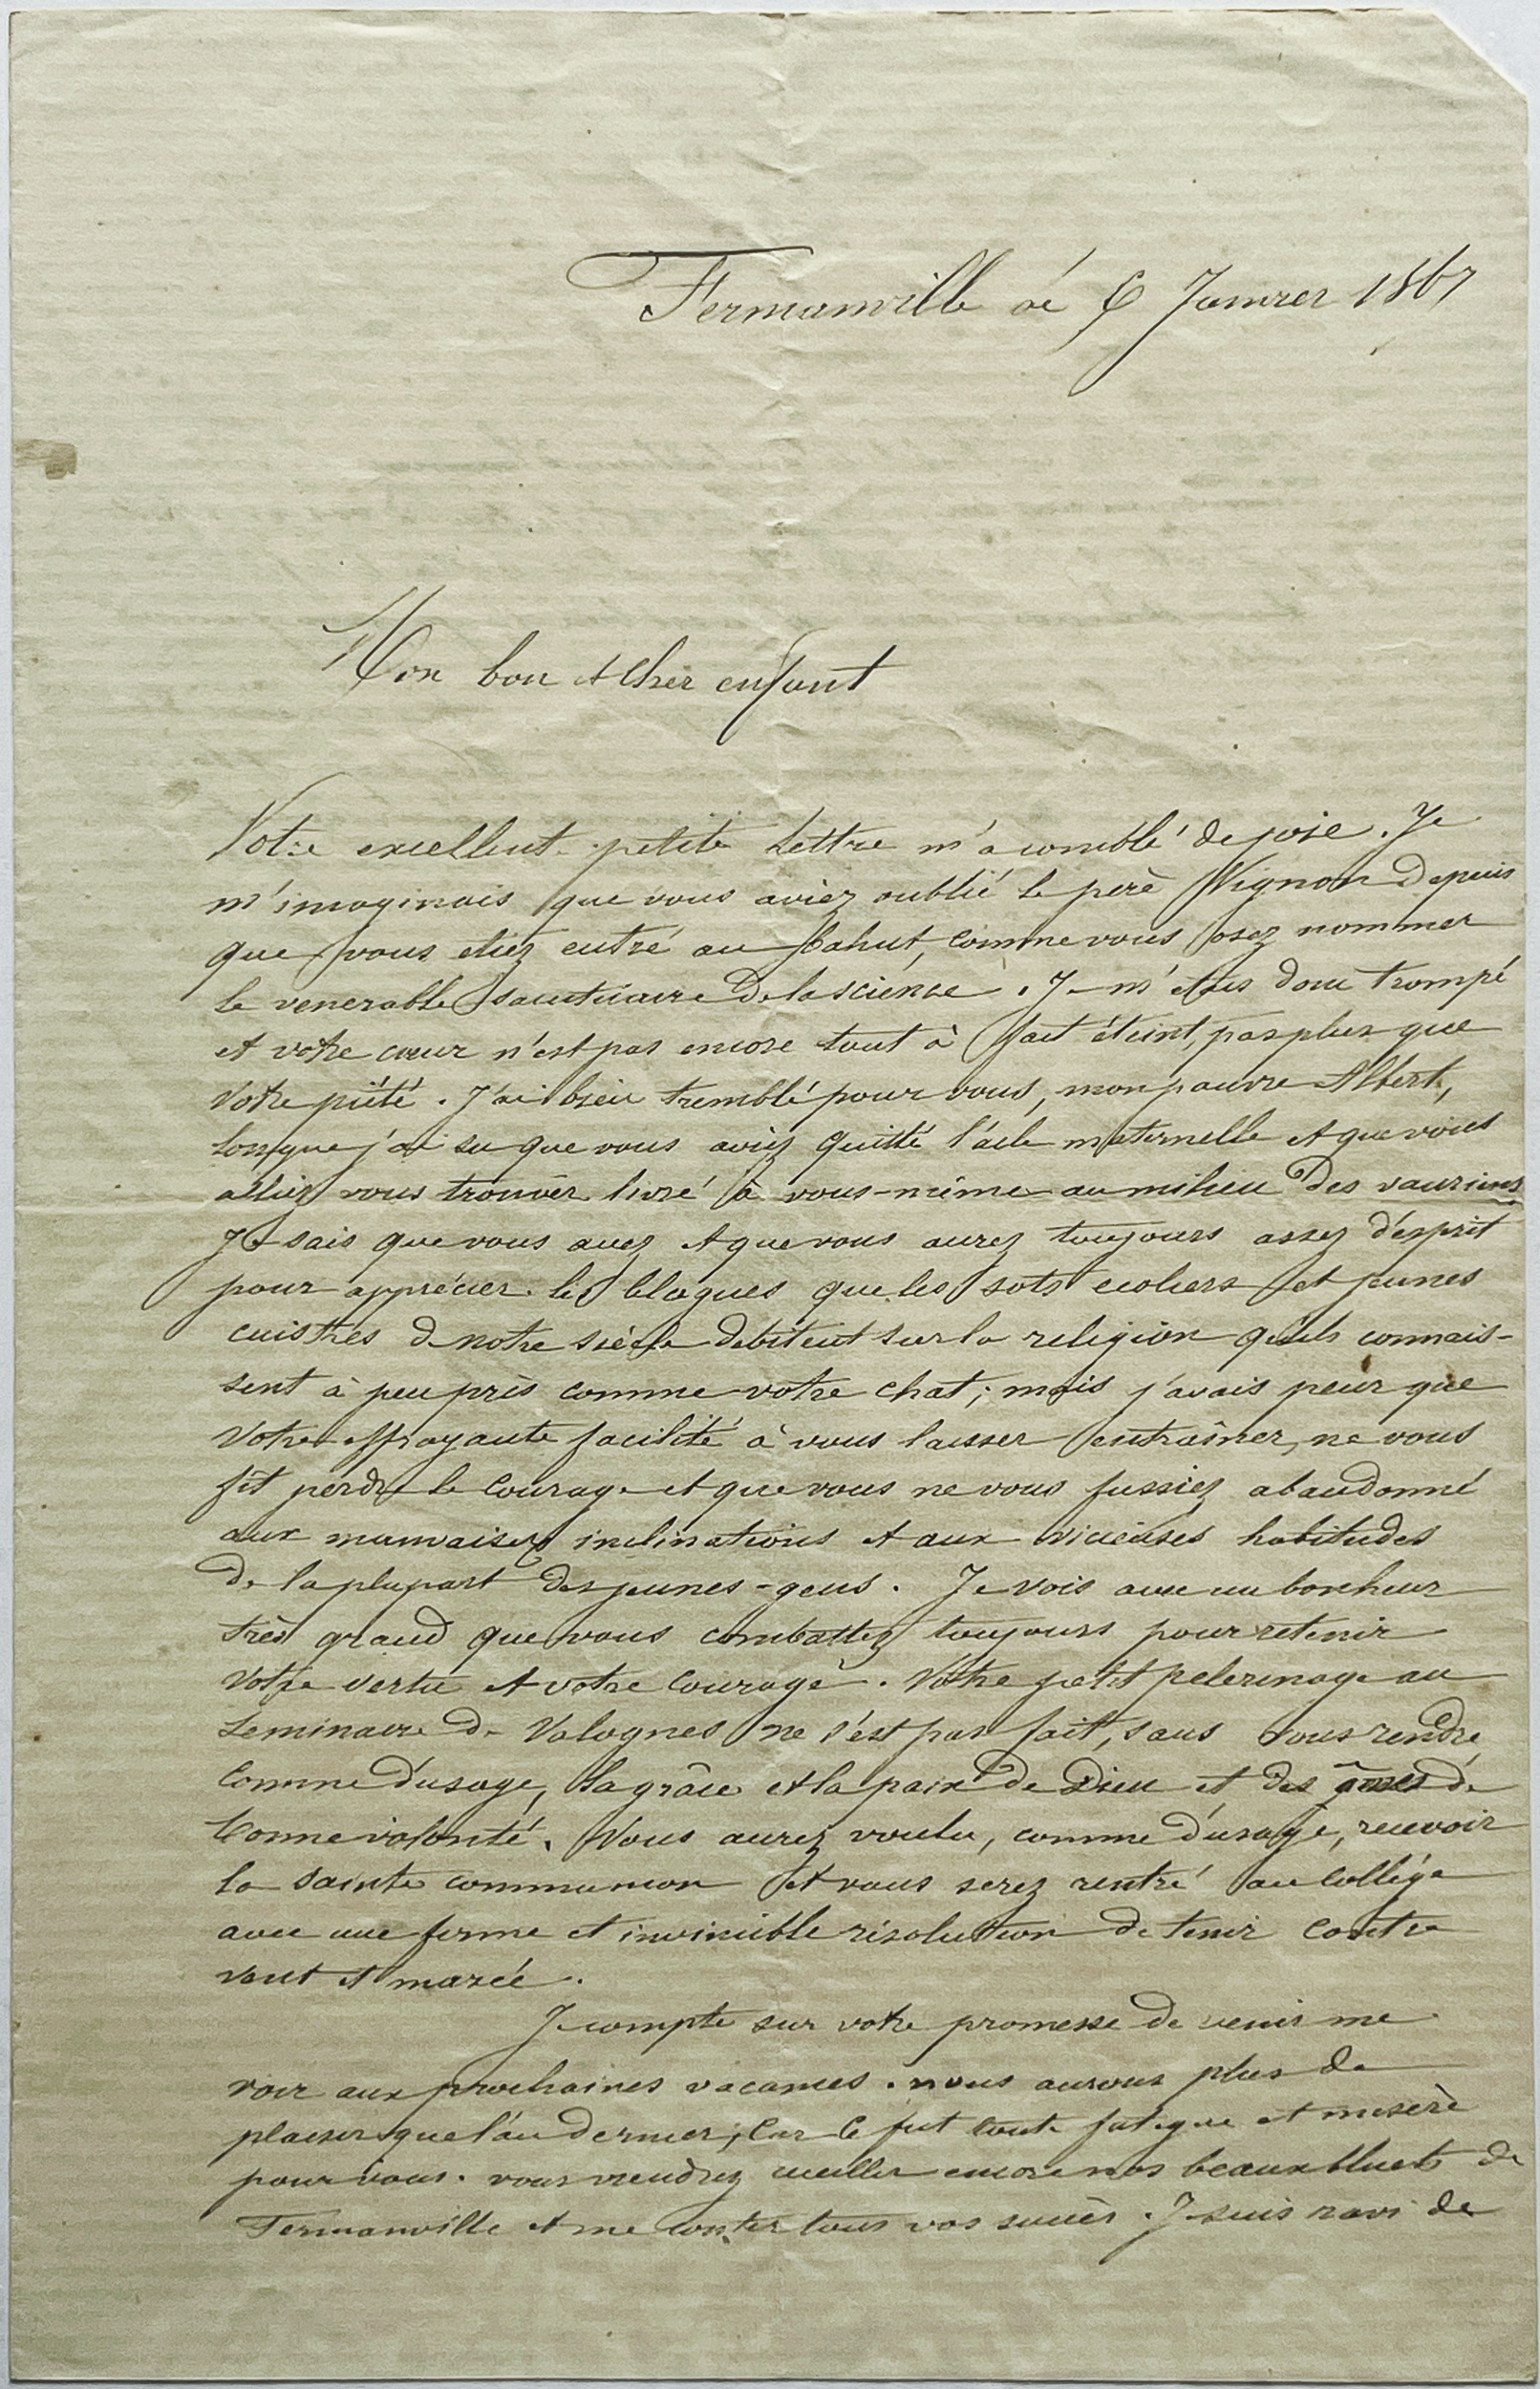 Fermanville 6 Janvier 1867
Mon bon et cher enfant
Votre excellente petite lettre m'a comblé de joie. Je
m'imaginais que vous aviez oublié le perè Vignon depuis
que vous etiez entré au bahut, comme vous osez nommer
le venerable sanctuaire de la science. Je m'etais donc trompé
et votre cœur n'est pas encore tout à fait éteint, pas plus que
votre piété. J'ai bien tremblé pour vous, mon pauvre Albert,
lorsque j'ai su que vous aviez quitté l'aile maternelle et que vous
alliez vous trouver livré à vous-même au milieu des vauriens
Je sais que vous avez et que vous aurez toujours assez d'esprit
pour apprécier les blagues que les sots ecoliers et jeunes
cuistres de notre siècle debitent sur la religion qu'ils connais-
sent à peu près comme votre chat; mais j'avais peur que
votre effrayante facilité à vous laisser entraîner, ne vous
fit perdre le courage et que vous ne vous fussiez abandonné
aux mauvaises inclinations et aux vicieuses habitudes
de la plupart des jeunes-gens. Je vois avec un bonheur
très grand que vous combattez toujours pour retenir
votre vertu et votre courage. Votre petit pelerinage au
seminaire de Valognes ne s'est pas fait, sans vous rendre
comme d'usage, la grâce et la paix de Dieu et des âmes de
bonne volonté. Vous aurez voulu, comme d'usage, recevoir
la sainte communion et vous serez rentré au collége
avec une ferme et invincible résolution de tenir contre
vent et marée.
Je compte sur votre promesse de venir me
voir aux prochaines vacances. nous aurons plus de
plaisir que l'an dernier; car ce fut toute fatigue et miserè
pour vous. vous viendrez cueillir encore nos beaux bluets de
Fermanville et me conter tous vos succès. Je suis ravi de